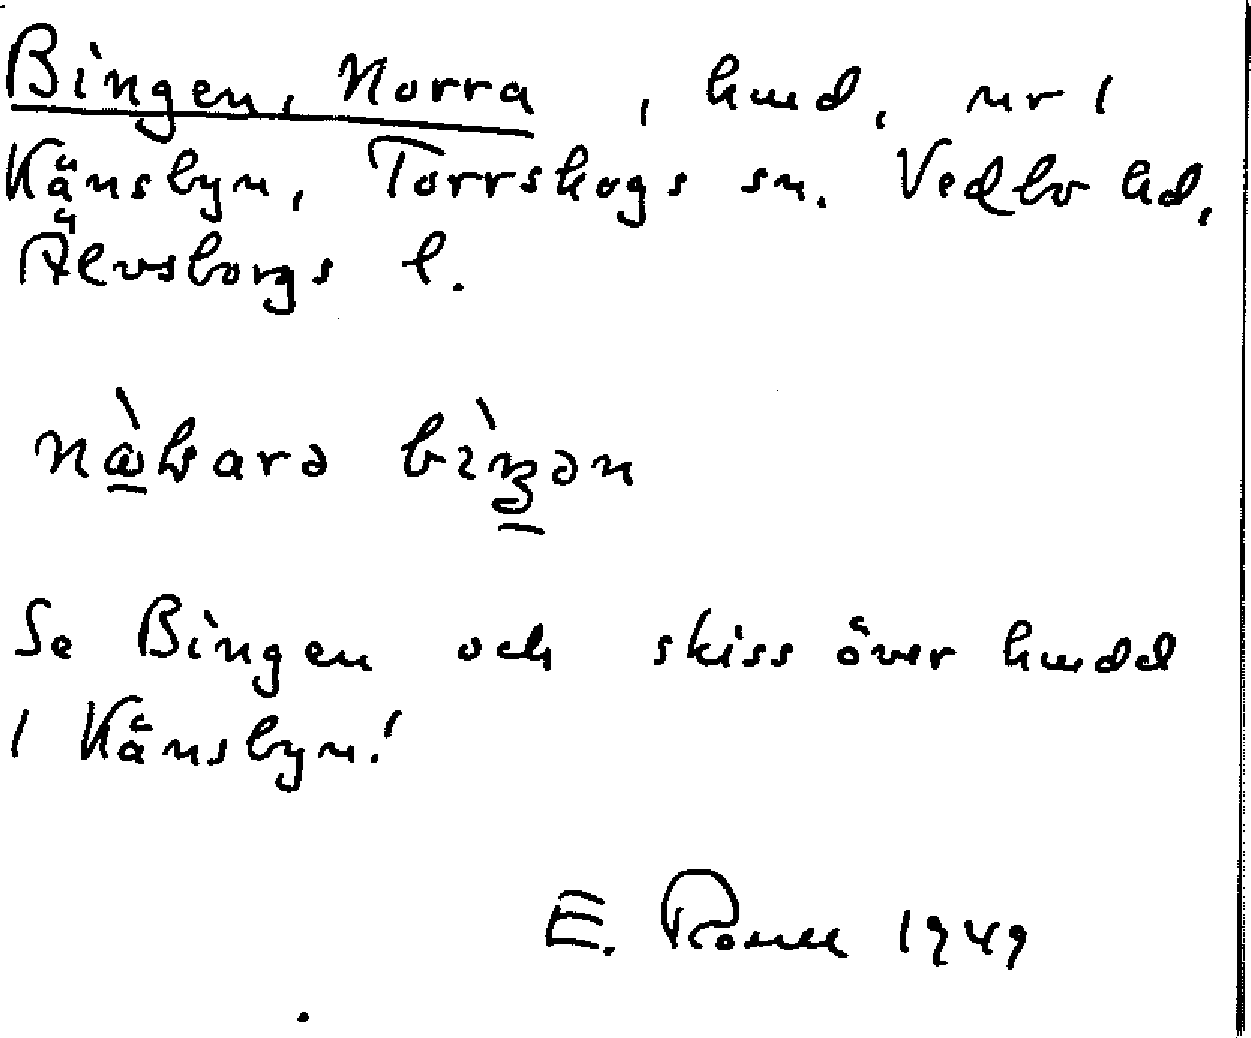 Bingen, Norra, hmd, nr 1
Känsbyn, Torrskogs sn. Vedbo hd,
Älvsborgs l.
bìŋən
Se Bingen och skiss över hmdd
i Känsbyn!
E. 1949